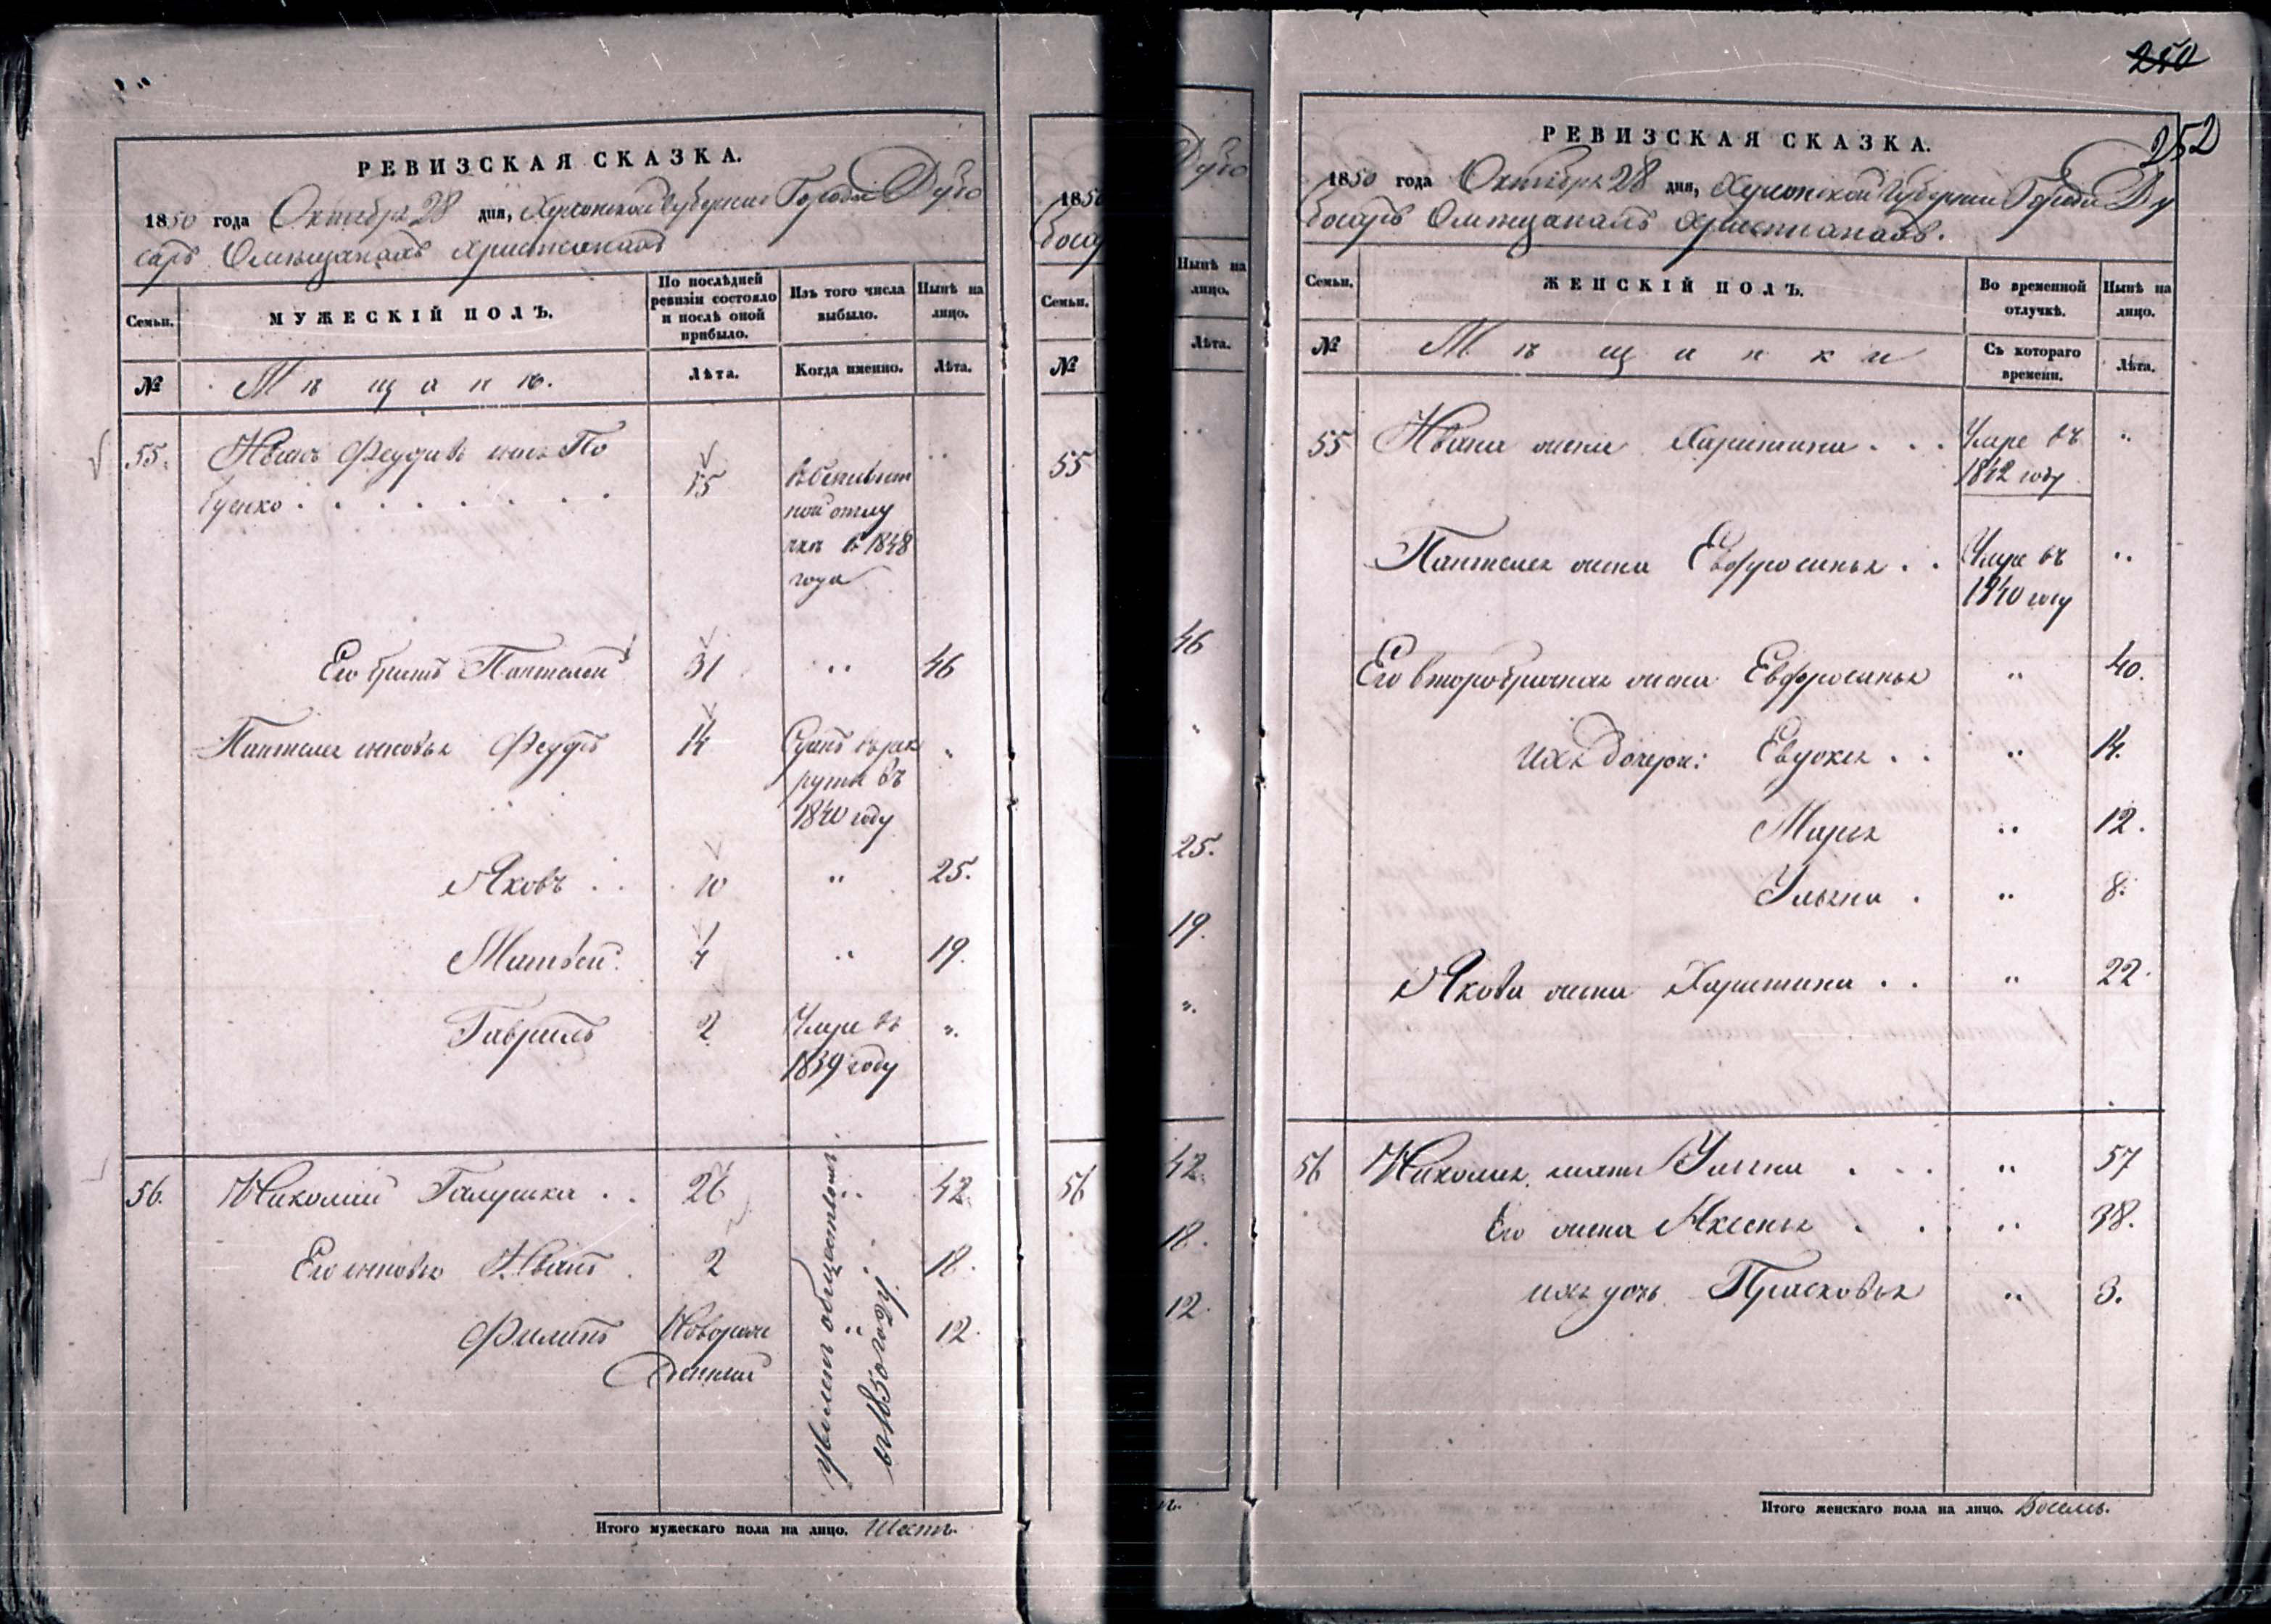 РЕВИЗСКАЯ СКАЗКА.
1850 года Октября 28 дня, Херсонской Губернии Города Дубо
саръ Омещанахъ Христианахъ
Семьи. МУЖЕСКІЙ ПОЛЪ. По послѣдней ревизіи состояло и послѣ оной прибыло. Изъ того числа выбыло. Нынѣ на лицо.
№ Мѣщанѣ. Лѣта. Когда именно. Лѣта.
55. Иванъ Феудовъ сынъ По
ѵ 15 в безвѣст
ной отлу
чкѣ с 1848
года
Его братъ Пантелей 31 " 46
Пантелея сыновья Феудъ 14 Сданъ въ рек "
руты въ
1840 году
Яковъ . . 10 " 25.
Матвей. 4 " 19.
Гаврилъ 2 Умре въ ".
1839 году
56. Николай Галушка . . 26 " 42.
Его сыновья Иванъ . 2 " 18.
Филипъ Новорож " 12.
денный
уволенъ обществомъ
въ 1850 году.
Итого мужескаго пола на лицо. Шесть.
1850
босар
Семьи.
№
55
56
Дубо
Нынѣ на
лицо.
Лѣта.
46
"
25.
19.
".
42.
18.
12.
250
252
РЕВИЗСКАЯ СКАЗКА.
1850 года Октября 28 дня, Херсонской Губернии Города Ду
босаръ Омещанахъ Христианахъ.
Семьи. ЖЕНСКІЙ ПОЛЪ. Во временной отлучкѣ. Нынѣ на лицо.
№ Мѣщанки Съ котораго времени. Лѣта.
55 Ивана жена Харитина . . . Умре въ "
1842 году
Пантелея жена Евфросинья . . Умре въ "
1840 году
Его второбрачная жена Евфросинья " 40.
Ихъ Дочери: Евдокея . . " 14.
Марья " 12.
Ульяна . " 8.
Якова жена Харитина . . " 22.
56 Николая мать Ульяна . . . " 57
Его жена Аксенья . . " 38.
ихъ дочь Прасковья " 3.
Итого женскаго пола на лицо. Восемь.